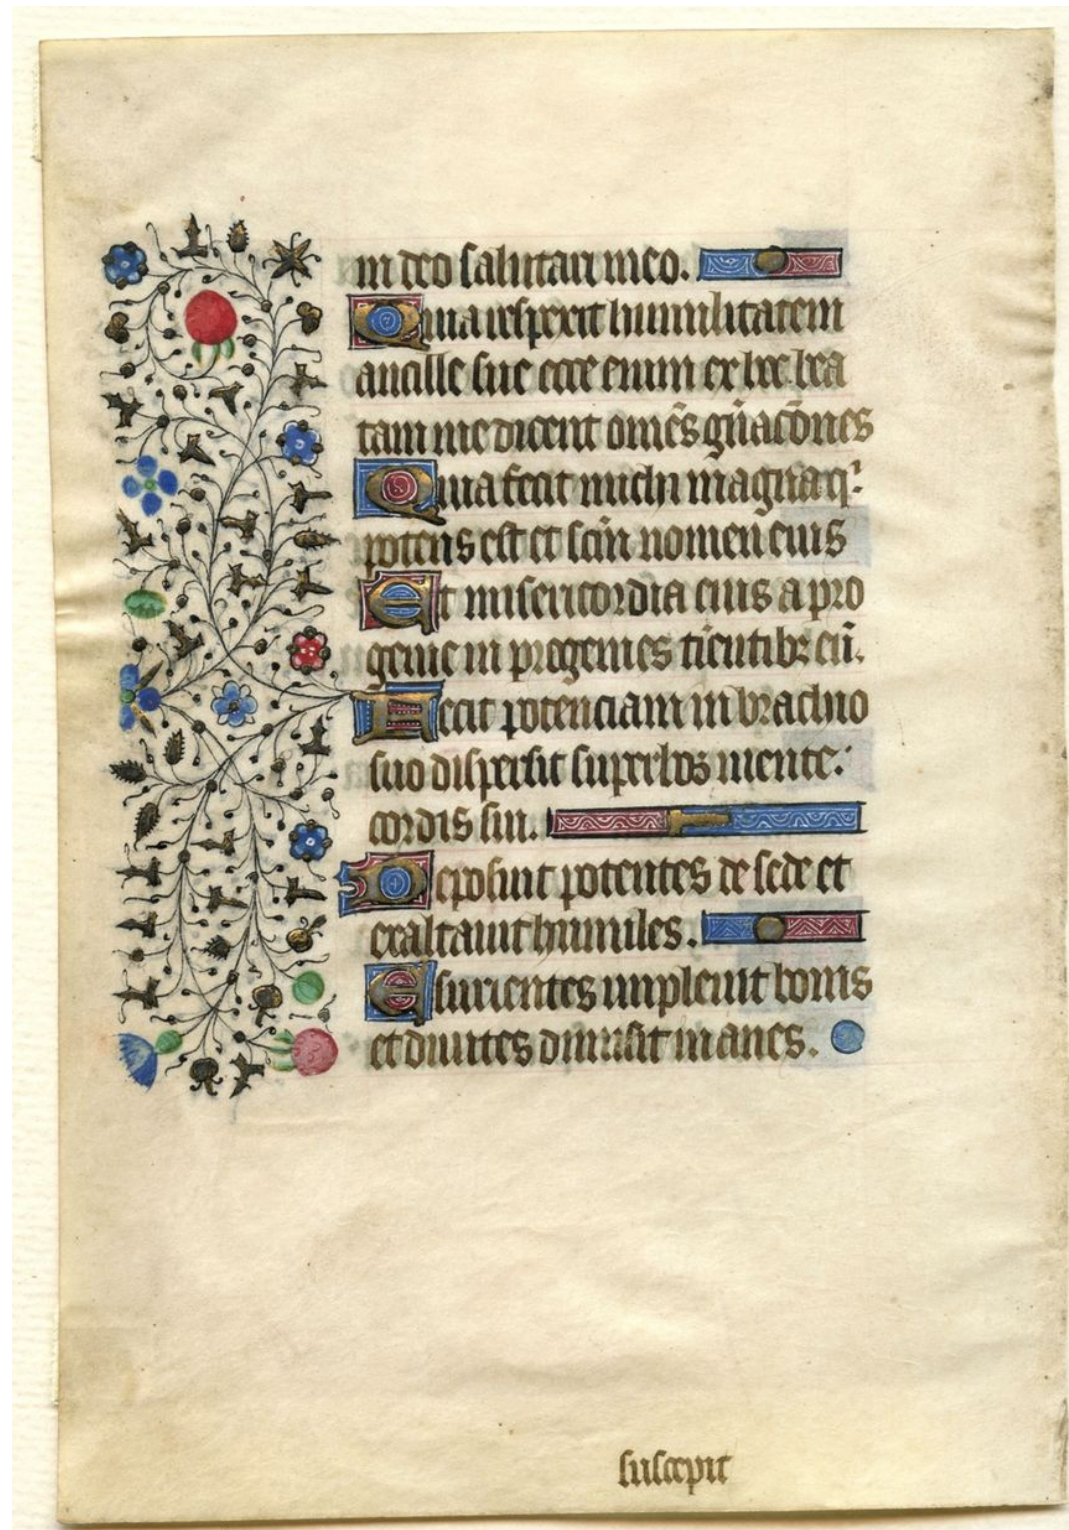 in deo salutari meo.
Quia respexit humilitatem
ancille sue ecce enim ex hoc bea
tam me dicent om̃es gñac̃ones
Quia fecit michi magna q̇:
potens est et scm̃ nomen eius
Et misericordia eius a pro
genie in progenies tim̃entibꝫ eũ.
Fecit potenciam in brachio
suo dispersit superbos mente:
cordis sui.
Deposuit potentes de sede et
exaltauit humiles.
Esurientes impleuit bonis
et diuites dimisit inanes.
suscepit